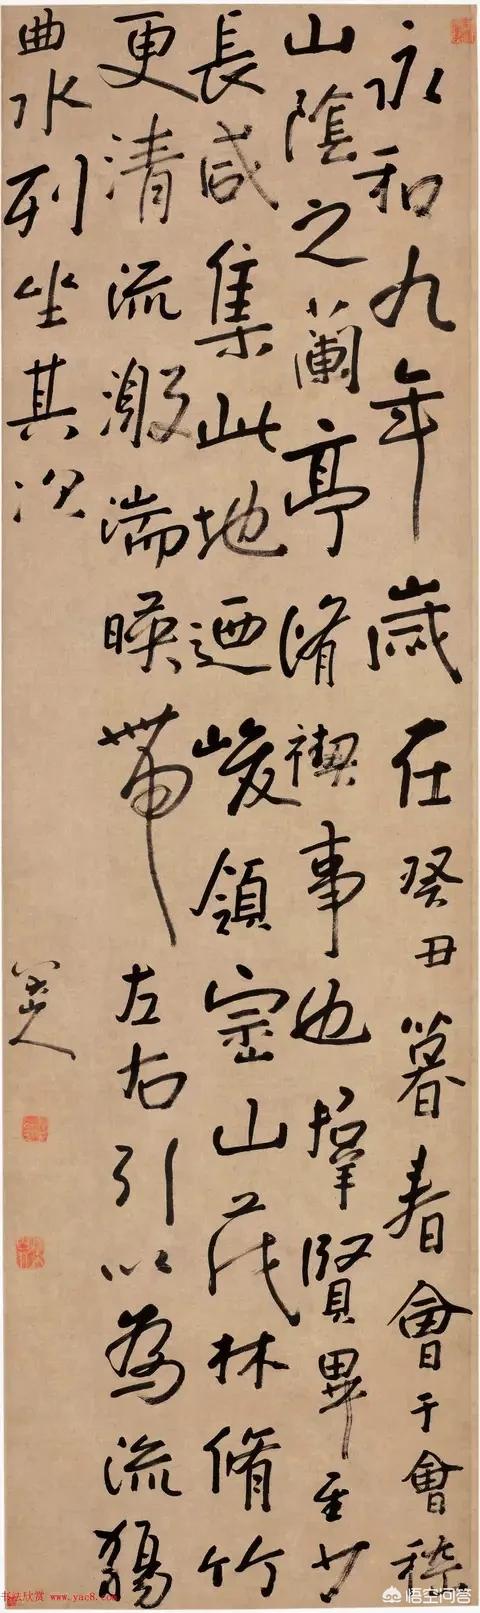 永和九年歲在癸丑暮春會于會稽
山陰之蘭亭脩禊事也羣賢畢至少
長咸集此地迺峻領崇山茂林脩竹
更清流激湍暎帶左右引以為流觴
曲水列坐其次
八大山人
书法欣赏 www.yac8.com
悟空问答